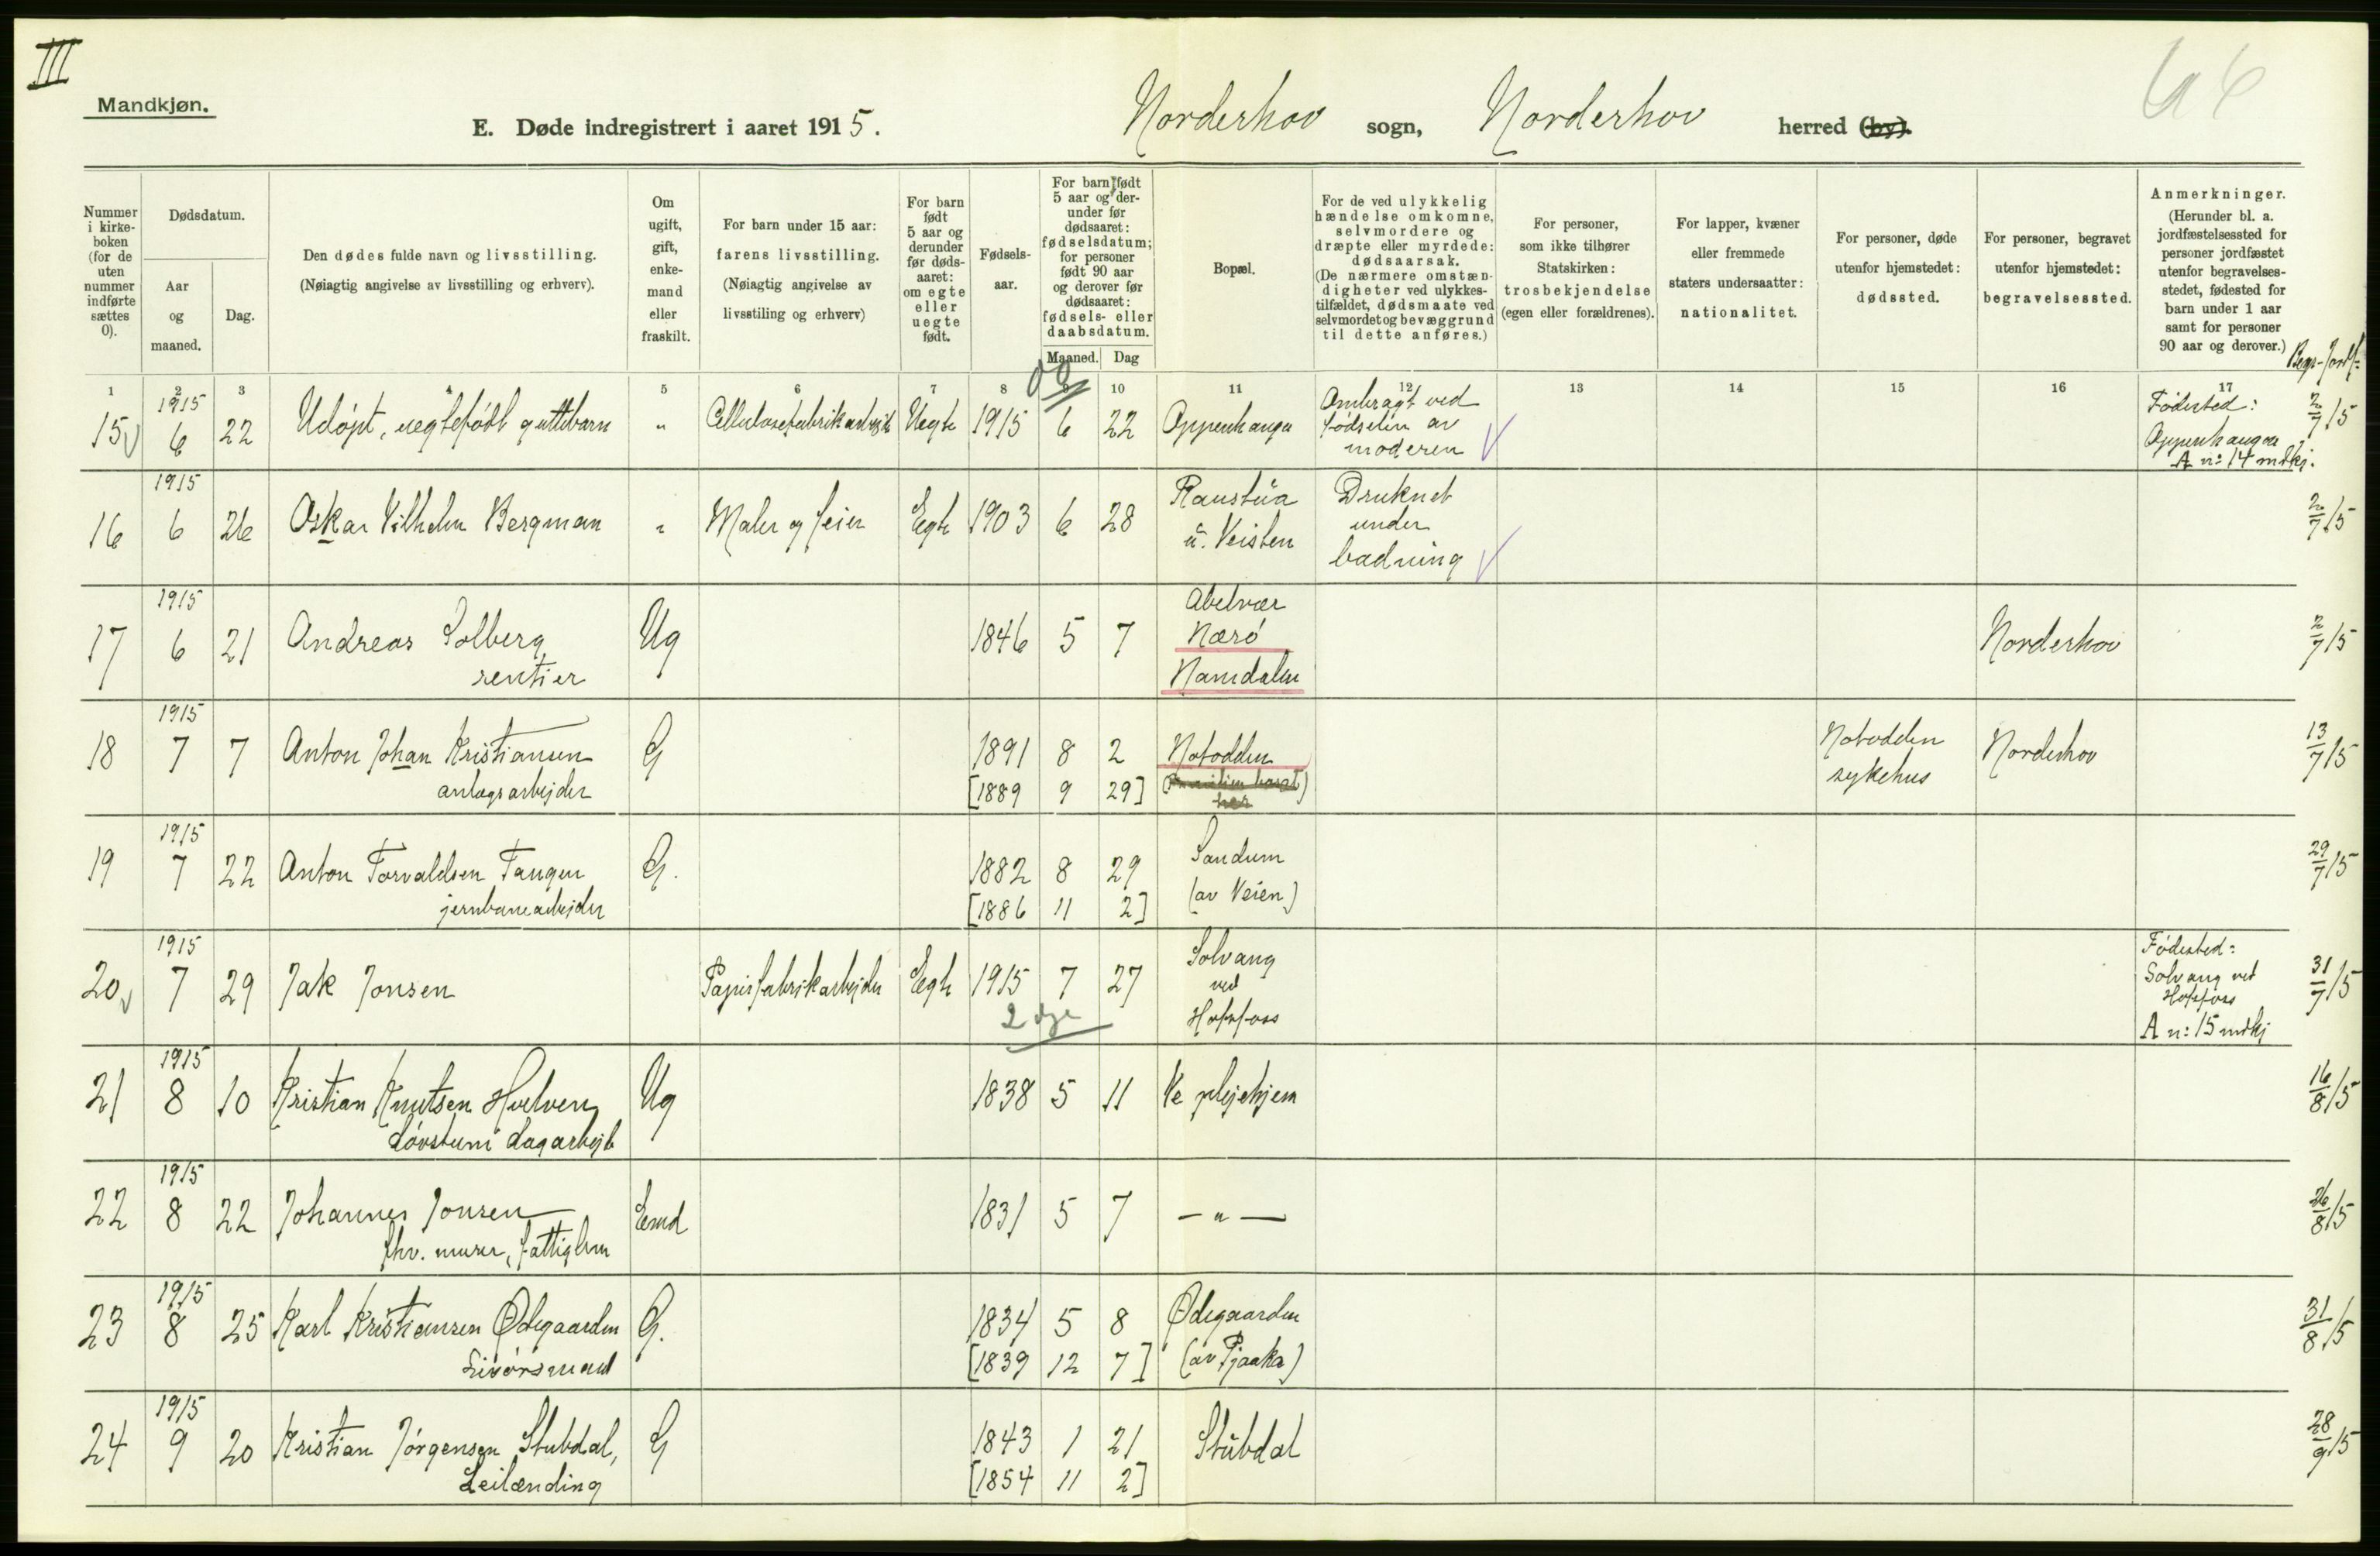 III
Mandkjøn.
E. Døde indregistrert i aaret 1915.
Norderhov sogn, Norderhov herred (by).
66
Nummer i kirke-boken (for de uten nummer indførte sættes 0).
Dødsdatum.
Aar og maaned.
Dag.
Den dødes fulde navn og livsstilling.
(Nøiagtig angivelse av livsstilling og erhverv).
Om ugift, gift, enke-mand eller fraskilt.
For barn under 15 aar:
farens livsstilling.
(Nøiagtig angivelse av livsstiling og erhverv)
For barn født 5 aar og derunder før døds-aaret: om egte eller uegte født.
Fødsels-aar.
For barn født 5 aar og der-under før dødsaaret: fødselsdatum; for personer født 90 aar og derover før dødsaaret: fødsels- eller daabsdatum.
Maaned. Dag
Bopæl.
For de ved ulykkelig hændelse omkomne, selvmordere og dræpte eller myrdede: dødsaarsak.
(De nærmere omstæn-digheter ved ulykkes-tilfældet, dødsmaate ved selvmordet og bevæggrund til dette anføres.)
For personer, som ikke tilhører Statskirken: trosbekjendelse (egen eller forældrenes).
For lapper, kvæner eller fremmede staters undersaatter: nationalitet.
For personer, døde utenfor hjemstedet: dødssted.
For personer, begravet utenfor hjemstedet: begravelsessted.
Anmerkninger.
(Herunder bl. a. jordfæstelsessted for personer jordfæstet utenfor begravelses-stedet, fødested for barn under 1 aar samt for personer 90 aar og derover.)
1 2 3 4 5 6 7 8 9 10 11 12 13 14 15 16 17
15 1915 6 22 Udøpt, uegtefødt guttebarn " Cellulosefabrikarbejd Uegte 1915 6 22 Oppenhaugen
Ombragt ved fødselen av moderen
Fødested: Oppenhaugen A n: 14 mdkj. 2/7 15
16 1915 6 26 Oskar Vilhelm Bergman " Maler og feier Egte 1903 6 28 Raustua u. Veisten
Druknet under badning
2/7 15
17 1915 6 21 Andreas Solberg rentier Ug 1846 5 7 Abelvær Nærø Namdalen Norderhov 2/7 15
18 1915 7 7 Anton Johan Kristiansen anlægsarbejder G 1891 8 2 Notodden
[1889 9 29]
Notodden sykehus Norderhov 13/7 15
19 1915 7 22 Anton Torvaldsen Tangen jernbanearbejder G. 1882 8 29 Sandum
[1886 11 2] (av Veien)
29/7 15
20 1915 7 29 Jak Jonsen Papirfabrikarbejder Egte 1915 7 27 Solvang ved Hofsfoss
2 dge
Fødested: Solvang ved Hofsfoss A n: 15 mdkj 31/7 15
21 1915 8 10 Kristian Knutsen Hvelven døvstum dagarbejd Ug 1838 5 11 Ve plejehjem 16/8 15
22 1915 8 22 Johannes Jonsen fhv. murer, fattiglem Emd 1831 5 7 — " — 26/8 15
23 1915 8 25 Karl Kristiansen Ødegaarden Livørsmand G. 1834 5 8 Ødegaarden
[1839 12 7] (av Pjaaka)
31/8 15
24 1915 9 20 Kristian Jørgensen Stubdal, Leilænding G 1843 1 21 Stubdal
[1854 11 2]
28/9 15